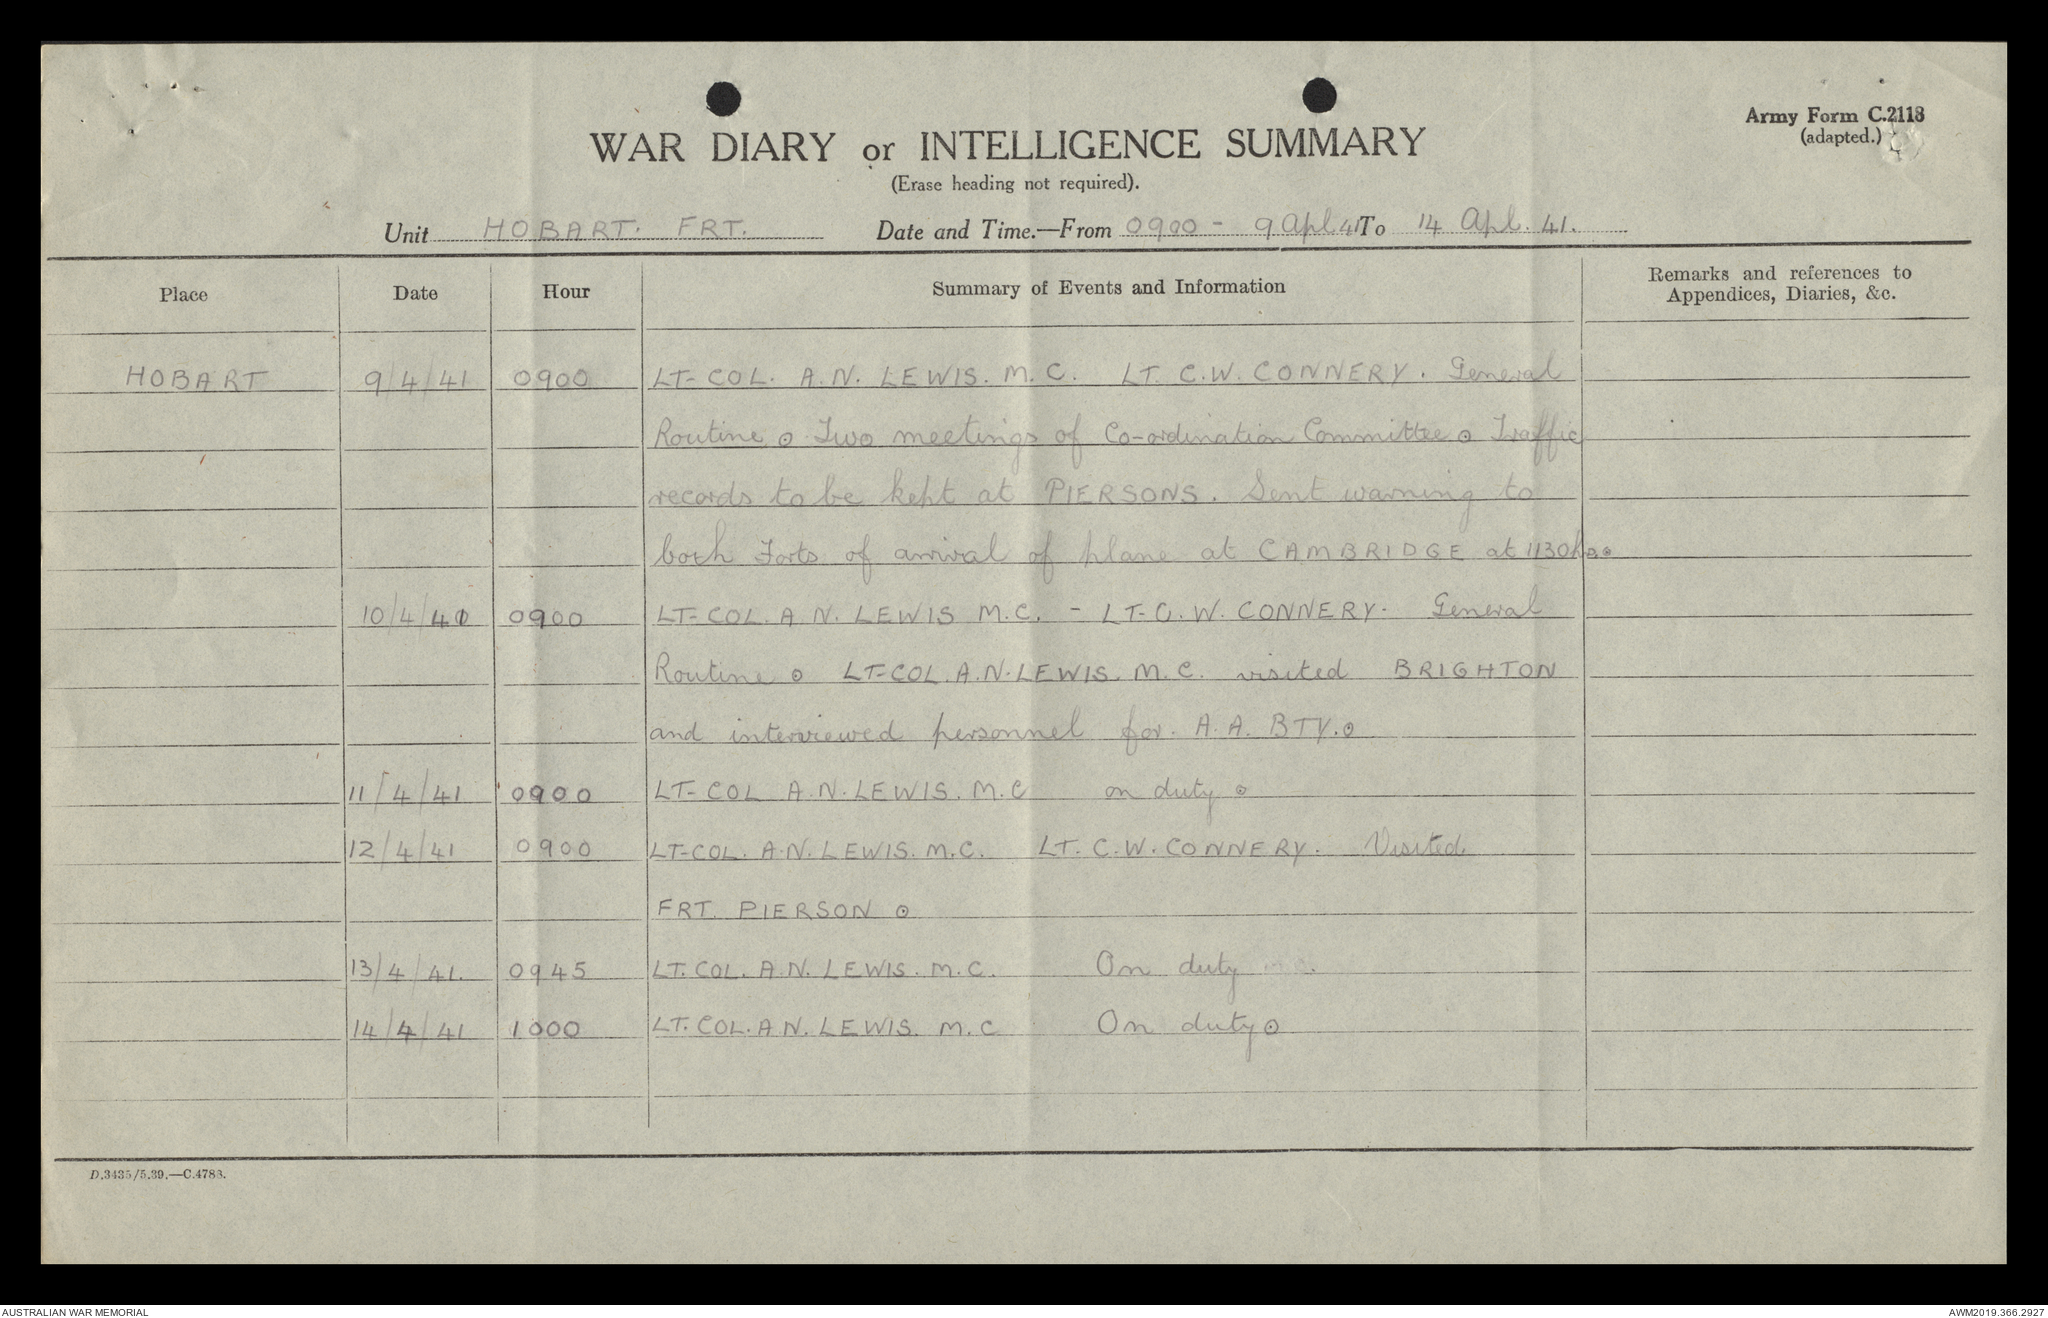 Army Form C.2118
(adapted.)
WAR DIARY or INTELLIGENCE SUMMARY
(Erase heading not required).
Unit HOBART. FRT. Date and Time.—From 0900 - 9 Apl 41 To 14 Apl. 41.
Place Date Hour Summary of Events and Information Remarks and references to Appendices, Diaries, &c.
HOBART 9/4/41 0900 LT-COL. A.N. LEWIS. M.C. LT. C.W. CONNERY. General
Routine . Two meetings of Co-ordination Committee . Traffic
records to be kept at PIERSONS. Sent warning to
both Forts of arrival of plane at CAMBRIDGE at 1130 hrs.
10/4/41 0900 LT-COL. A.N. LEWIS M.C. - LT-C.W. CONNERY. General
Routine . LT-COL. A.N. LEWIS. M.C. visited BRIGHTON
and interviewed personnel for. A.A. BTY.
11/4/41 0900 LT-COL A.N. LEWIS. M.C on duty .
12/4/41 0900 LT-COL. A.N. LEWIS. M.C. LT. C.W. CONNERY. Visited
FRT. PIERSON .
13/4/41. 0945 LT. COL. A.N. LEWIS. M.C. On duty .
14/4/41 1000 LT. COL. A.N. LEWIS. M.C On duty .
D.3435/5.39.—C.4783.
AUSTRALIAN WAR MEMORIAL AWM2019.366.2927